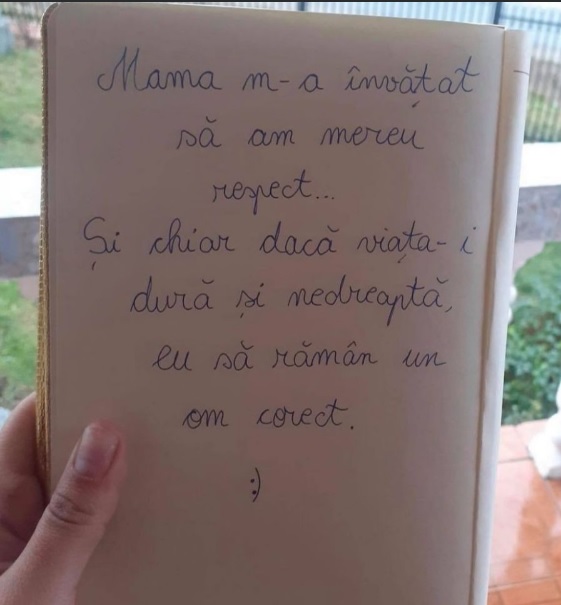 Mama m-a învățat
să am mereu
respect...
Și chiar dacă viața-i
dură și nedreaptă,
eu să rămân un
om corect.
:)